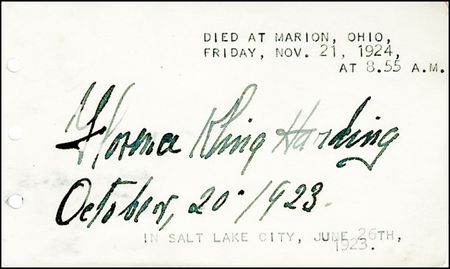 DIED AT MARION, OHIO,
FRIDAY, NOV. 21, 1924,
AT 8.55 A.M.
Florence Kling Harding
October, 20 - 1923.
IN SALT LAKE CITY, JUNE 26TH,
1923.